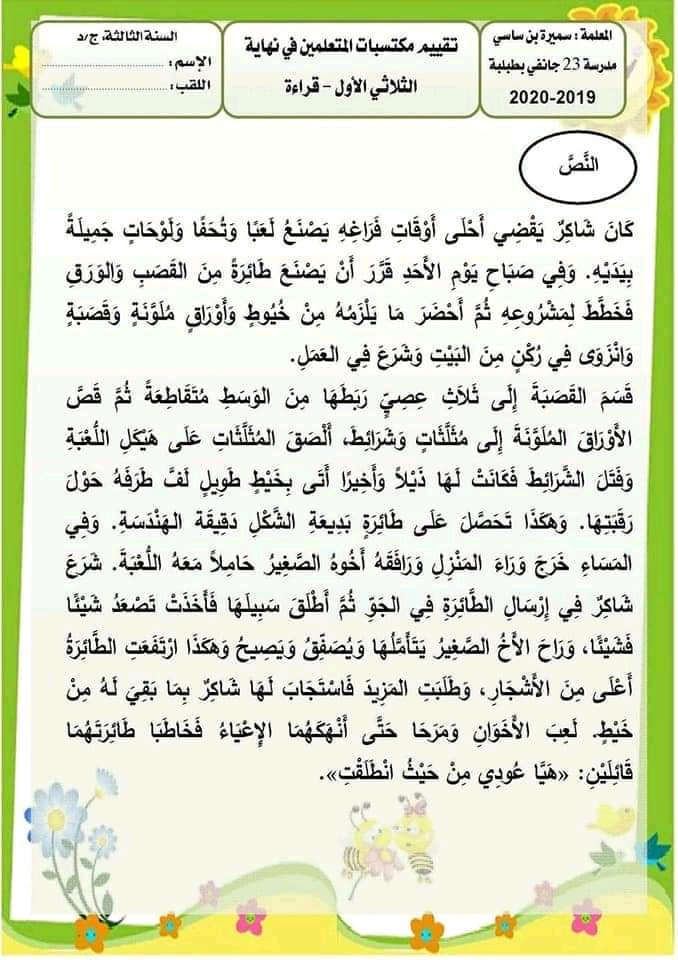 المعلمة : سميرة بن ساسي
مدرسة 23 جانفي بطبلبة
2020-2019
تقييم مكتسبات المتعلمين في نهاية
الثلاثي الأول - قراءة
السنة الثالثة، ج/د
الإسم : ........................
اللقب : ........................
النَّصَّ
كَانَ شَاكِرٌ يَقْضِي أَحْلَى أَوْقَاتِ فَرَاغِهِ يَصْنَعُ لَعَبًا وَتُحَفًا وَلَوْحَاتٍ جَمِيلَةً
بِيَدَيْهِ. وَفِي صَبَاحِ يَوْمِ الأَحَدِ قَرَّرَ أَنْ يَصْنَعَ طَائِرَةً مِنَ القَصَبِ وَالوَرَقِ
فَخَطَّطَ لِمَشْرُوعِهِ ثُمَّ أَحْضَرَ مَا يَلْزَمُهُ مِنْ خُيُوطٍ وَأَوْرَاقٍ مُلَوَّنَةٍ وَقَصَبَةٍ
وَانْزَوَى فِي رُكْنٍ مِنَ البَيْتِ وَشَرَعَ فِي العَمَلِ.
قَسَمَ القَصَبَةَ إِلَى ثَلَاثِ عِصِيٍّ رَبَطَهَا مِنَ الوَسَطِ مُتَقَاطِعَةً ثُمَّ قَصَّ
الأَوْرَاقَ المُلَوَّنَةَ إِلَى مُثَلَّثَاتٍ وَشَرَائِطَ، أَلْصَقَ المُثَلَّثَاتِ عَلَى هَيْكَلِ اللُّعْبَةِ
وَفَتَلَ الشَّرَائِطَ فَكَانَتْ لَهَا ذَيْلاً وَأَخِيرًا أَتَى بِخَيْطٍ طَوِيلٍ لَفَّ طَرَفَهُ حَوْلَ
رَقَبَتِهَا. وَهَكَذَا تَحَصَلَ عَلَى طَائِرَةٍ بَدِيعَةِ الشَّكْلِ دَقِيقَة الهَنْدَسَةِ. وَفِي
المَسَاءِ خَرَجَ وَرَاءَ المَنْزِلِ وَرَافَقَهُ أَخُوهُ الصَّغِيرُ حَامِلاً مَعَهُ اللُّعْبَةَ. شَرَعَ
شَاكِرٌ فِي إِرْسَالِ الطَّائِرَةِ فِي الجَوِّ ثُمَّ أَطْلَقَ سَبِيلَهَا فَأَخَذَتْ تَصْعَدُ شَيْئًا
فَشَيْئًا، وَرَاحَ الأَخُ الصَّغِيرُ يَتَأَمَّلُهَا وَيُصَفِّقُ وَيَصِيحُ وَهَكَذَا ارْتَفَعَتِ الطَّائِرَةُ
أَعْلَى مِنَ الأَشْجَارِ، وَطَلَبَتِ المَزِيدَ فَاسْتَجَابَ لَهَا شَاكِرٌ بِمَا بَقِيَ لَهُ مِنْ
خَيْطٍ. لَعِبَ الأَخَوَانِ وَمَرَحَا حَتَّى أَنْهَكَهُمَا الإِعْيَاءُ فَخَاطَبَا طَائِرَتَهُمَا
قَائِلَيْنِ: «هَيَّا عُودِي مِنْ حَيْثُ انْطَلَقْتِ».